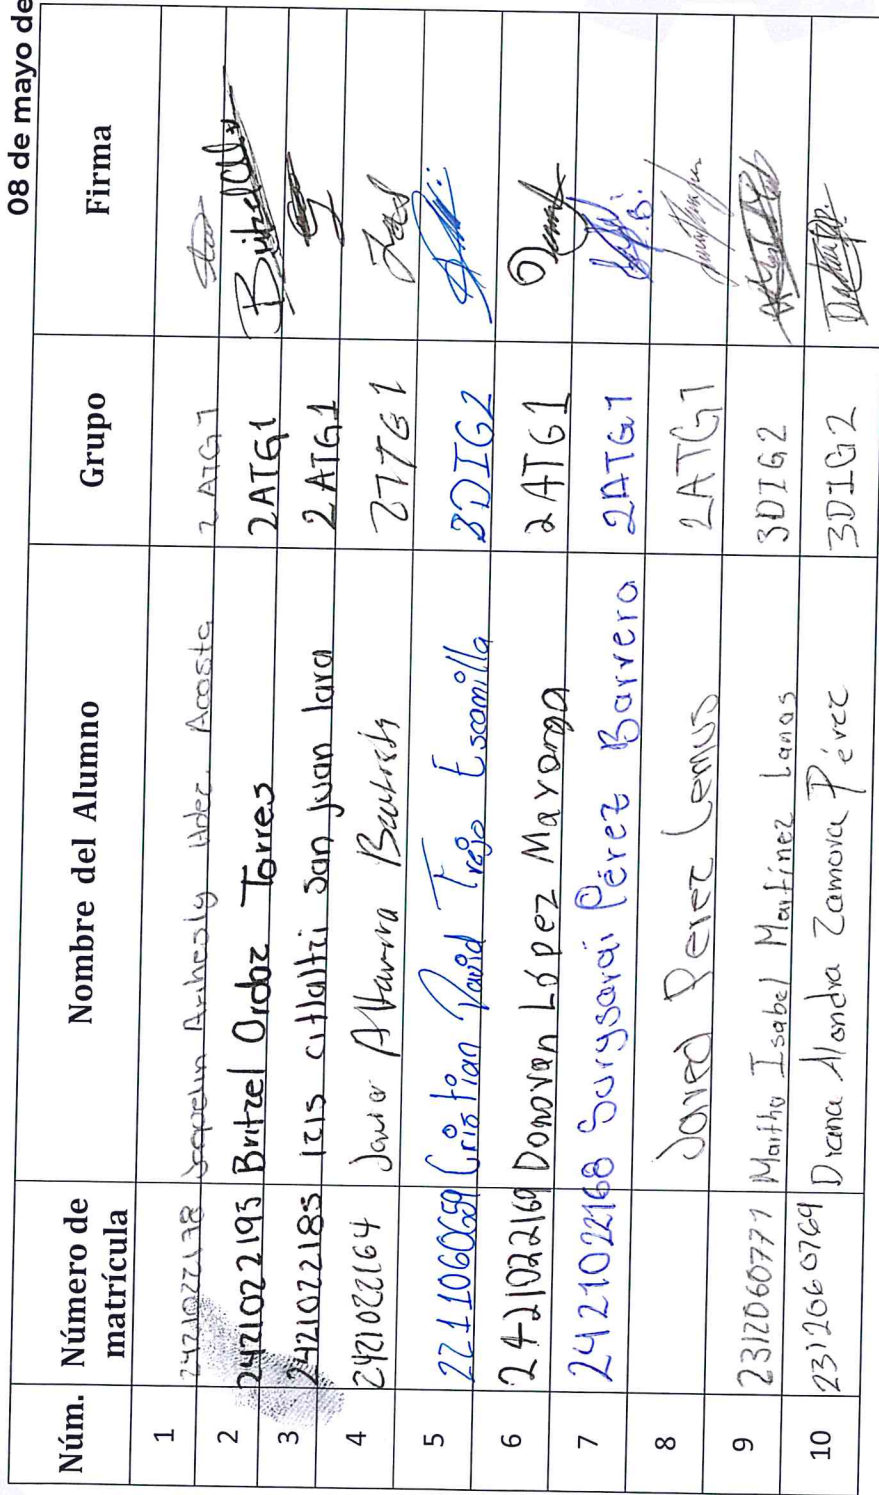 08 de mayo de
Núm. Número de matrícula Nombre del Alumno Grupo Firma
1 2421022178 Jaquelin Arihesly Hdez. Acosta 2ATG1
2 2421022193 Britzel Ordoz Torres 2ATG1
3 2421022185 Izis citlaltzi San juan lara 2ATG1
4 2421022164 Javier Altamira Bautista 2TTG1
5 2211060659 Cristian David Trejo Escamilla 3DIG2
6 2421022169 Donovan López Mayorga 2ATG1
7 2421022168 Surysarai Pérez Barrera 2ATG1
8 Jared Perez Lemus 2ATG1
9 2312060777 Martha Isabel Martínez Lanas 3DIG2
10 2312060769 Diana Alondra Zamora Pérez 3DIG2